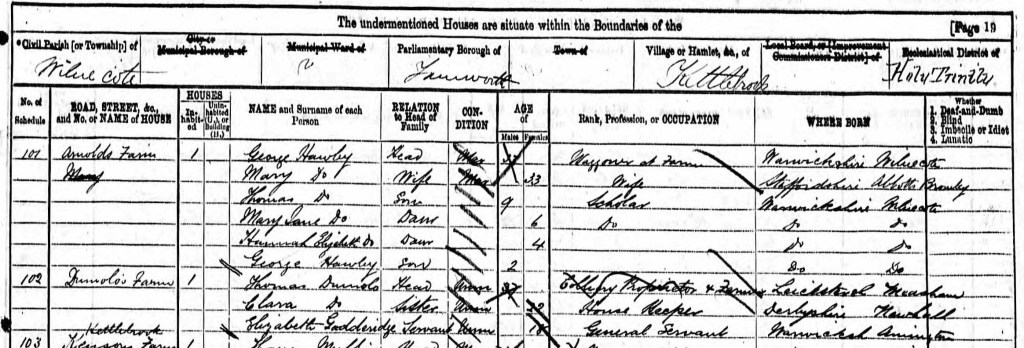 The undermentioned Houses are situate within the Boundaries of the [Page 19
Civil Parish [or Township] of
City or Municipal Borough of
Municipal Ward of
Parliamentary Borough of
Town of
Village or Hamlet, &c., of
Local Board, or [Improvement Commissioners District] of
Ecclesiastical District of
Wilnecote Tamworth Kettlebrook Holy Trinity
No. of Schedule
ROAD, STREET, &c., and No. or NAME of HOUSE
HOUSES
Inhabited
Uninhabited (U.), or Building (B.)
NAME and Surname of each Person
RELATION to Head of Family
CONDITION
AGE of
Males Females
Rank, Profession, or OCCUPATION
WHERE BORN
Whether
1. Deaf-and-Dumb
2. Blind
3. Imbecile or Idiot
4. Lunatic
101 Arnolds Farm 1 George Hawley Head Mar Waggoner at Farm Warwickshire Wilnecote
Mary Do Wife Mar 33 Wife Staffordshire Abbotts Bromley
Thomas Do Son 9 Scholar Warwickshire Wilnecote
Mary Jane Do Daur 6 Do Do Do
Hannah Elizabeth Do Daur 4 Do Do
George Hawley Son 2 Do Do
102 Farm 1 Thomas Head Unm 37 Colliery Proprietor & Farmer Measham
Clara Do Sister Unm House Keeper Derbyshire Newhall
Elizabeth Gadderidge Servant Unm 18 General Servant Amington
Kettlebrook
103 Farm 1